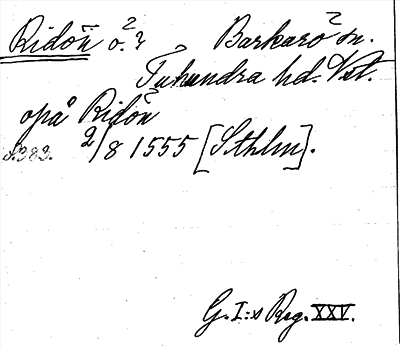 Ridön ö. ? Barkarö sn.
Tuhundra hd. Vst.
opå Ridön
s.383. 2/8 1555 [Sthlm].
G.I:s Reg. XXV.